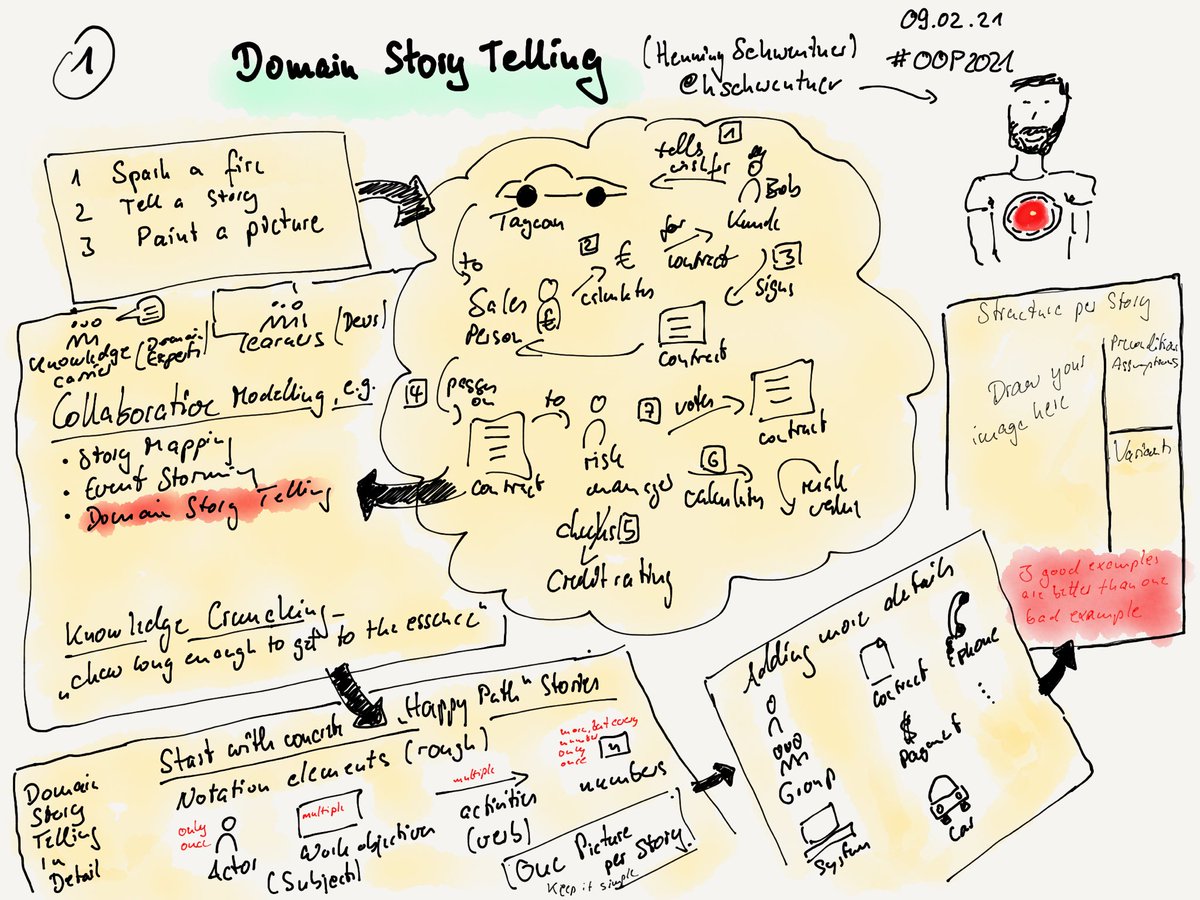 1
Domain Story Telling
(Henning Schwentner)
@hschwentner
09.02.21
#OOP2021
1 Spark a fire
2 Tell a Story
3 Paint a picture
tells 1
wish for
Bob
Kunde
Taycan
to
Sales
Person
€
2
calculates
€
for
contract
3
signs
contract
4
passes
on
contract
to
risk
manager
7
votes
contract
6
calculates
risk
value
checks 5
Credit rating
Knowledge
carrier
(Domain
Experts)
Learners
(Devs)
Collaborative Modelling, e.g.
• Story Mapping
• Event Storming
• Domain Story Telling
Knowledge Crunching
„chew long enough to get to the essence“
Structure per Story
Draw your
image here
Preconditions
Assumptions
Variants
3 good examples
are better than one
bad example
Domain
Story
Telling
in
Detail
Start with concrete „Happy Path“ Stories
Notation elements (rough)
only
once
Actor
multiple
Work objectives
(Subject)
multiple
activities
(verb)
more, but every
number
only
once
n
numbers
One Picture
per Story.
Keep it simple
Adding more details
Group
System
Contract
Phone
....
$
Payment
Car